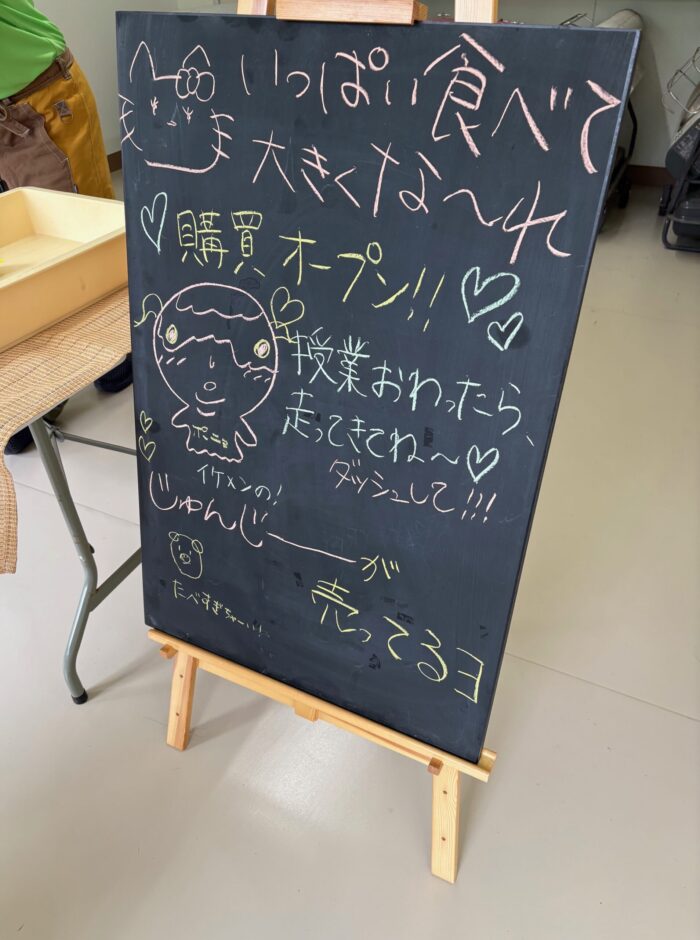 いっぱい食べて
大きくな〜れ
購買オープン!!
授業おわったら、
走ってきてね〜
ポニョ
ダッシュして!!!
イケメンの!
じゅんじーーが
たべすぎちゃー!!
売ってるヨ